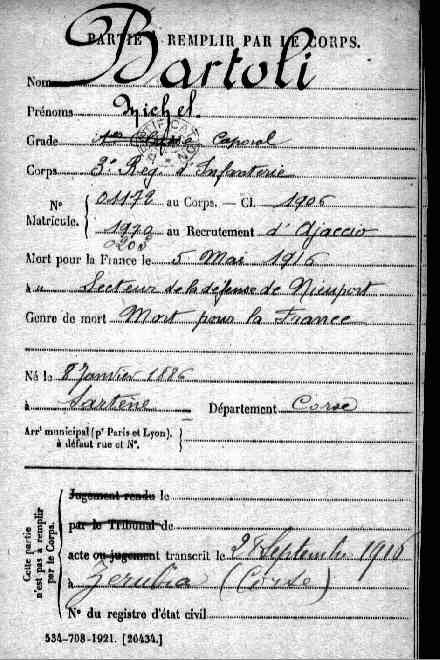 PARTIE À REMPLIR PAR LE CORPS.
Nom Bartoli
Prénoms Michel
Grade Caporal
Corps 3e Rég. d'Infanterie
N° Matricule. { 01172 au Corps. — Cl. 1906
1970 au Recrutement d'Ajaccio
Mort pour la France le 5 Mai 1916
à Secteur de la défense de Nieuport
Genre de mort Mort pour la France
Né le 8 Janvier 1886
à Sartène Département Corse
Arrt municipal (pr Paris et Lyon),
à défaut rue et N°.
Cette partie n'est pas à remplir par le Corps.
Jugement rendu le
par le Tribunal de
acte ou jugement transcrit le 28 Septembre 1916
à Zerubia (Corse)
N° du registre d'état civil
534-708-1921. [26434.]